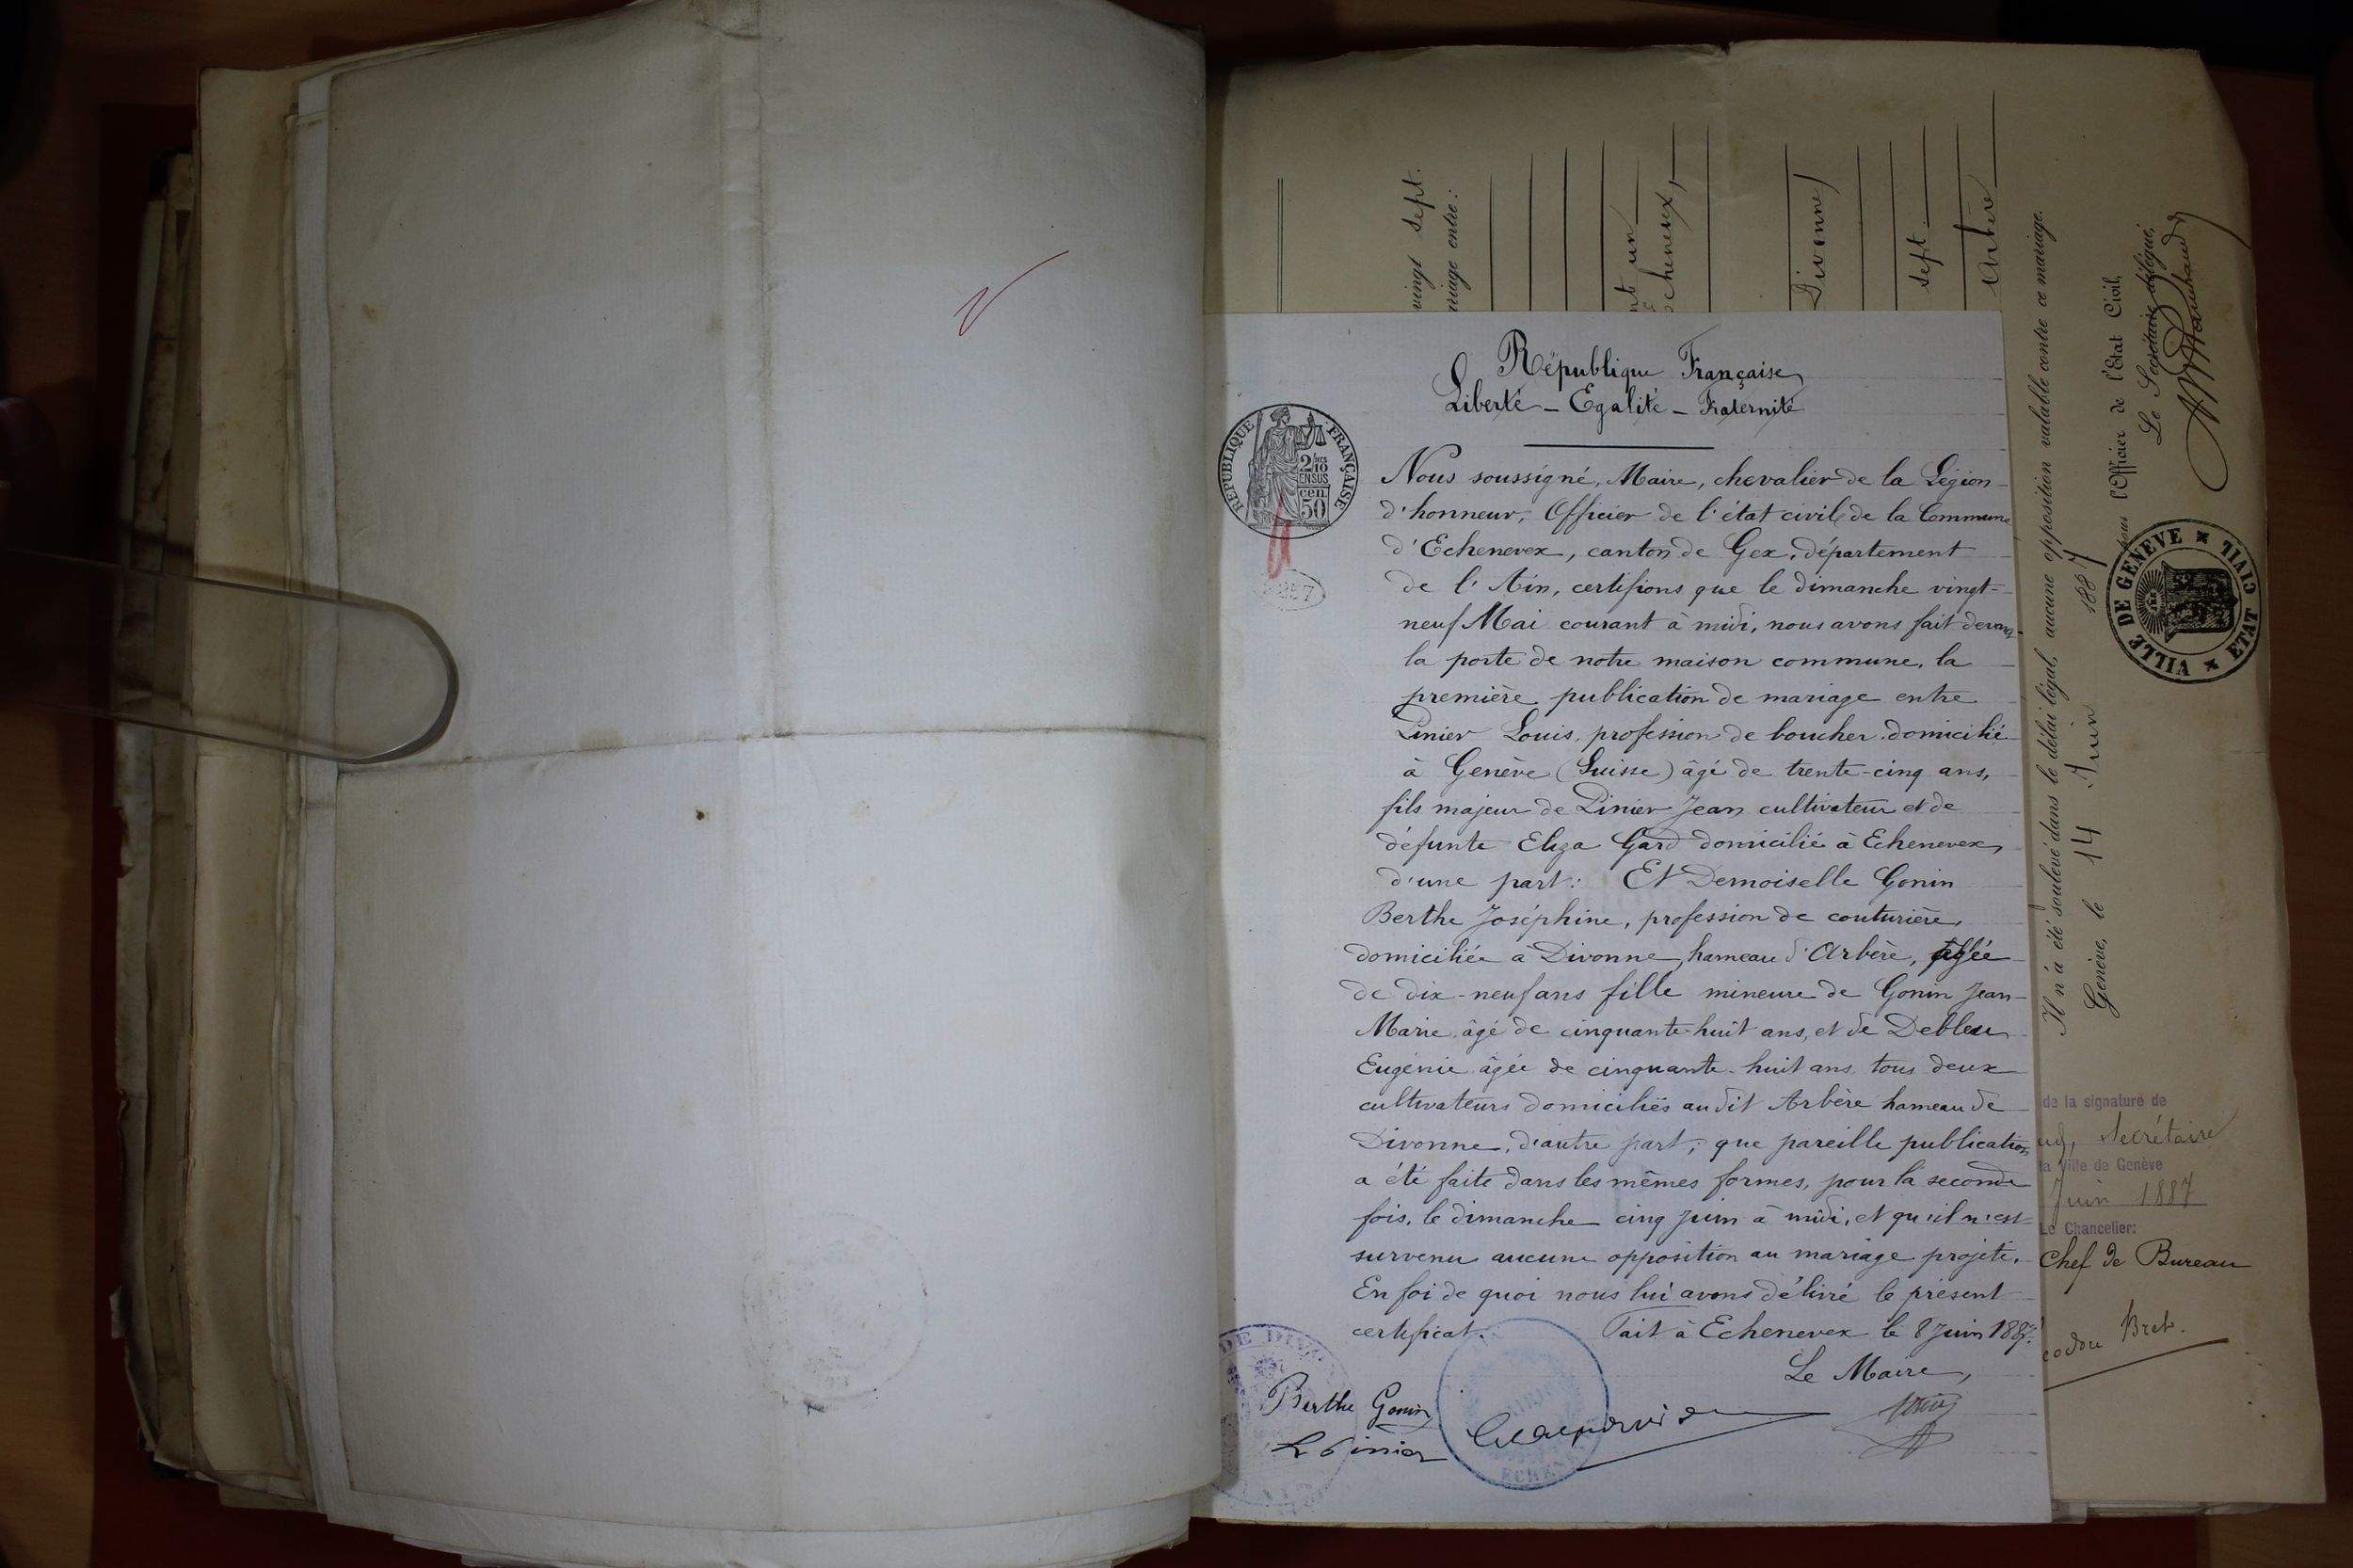 République Française
Liberté - Egalité - Fraternité
REPUBLIQUE FRANÇAISE
2/10
EN SUS
cen.
50
Nous soussigné, Maire, chevalier de la Légion
d'honneur, Officier de l'état civil de la Commune
d'Echenevex, canton de Gex, département
de l'Ain, certifions que le dimanche vingt-
neuf Mai courant à midi, nous avons fait devant
la porte de notre maison commune, la
première publication de mariage entre
Pinier Louis, profession de boucher domicilié
à Genève (Suisse) âgé de trente-cinq ans,
fils majeur de Pinier Jean cultivateur et de
défunte Eliza Gard domicilié à Echenevex,
d'une part: Et Demoiselle Gonin
Berthe Joséphine, profession de couturière,
domiciliée à Divonne, hameau d'Arbère, agée
de dix-neuf ans fille mineure de Gonin Jean-
Marie âgé de cinquante-huit ans, et de Debleu
Eugénie âgée de cinquante-huit ans tous deux
cultivateurs domiciliés audit Arbère hameau de
Divonne, d'autre part; que pareille publication
a été faite dans les mêmes formes, pour la seconde
fois, le dimanche cinq juin à midi, et qu'il n'est
survenu aucune opposition au mariage projeté.
En foi de quoi nous lui avons délivré le présent
certificat. Fait à Echenevex le 8 Juin 1887.
Le Maire,
Berthe Gonin
L Pinier
vingt sept.
riage entre:
nt un
Echenevex,
Divonne
sept.
Arbère
Il n'a été soulevé dans le délai légal, aucune opposition valable contre ce mariage.
Genève, le 14 Juin 1887
pour l'Officier de l'Etat Civil,
Le Secrétaire délégué,
VILLE DE GENEVE
ETAT CIVIL
de la signature de
ud, Secrétaire
la Ville de Genève
Juin 1887
Le Chancelier:
Chef de Bureau
Bret.